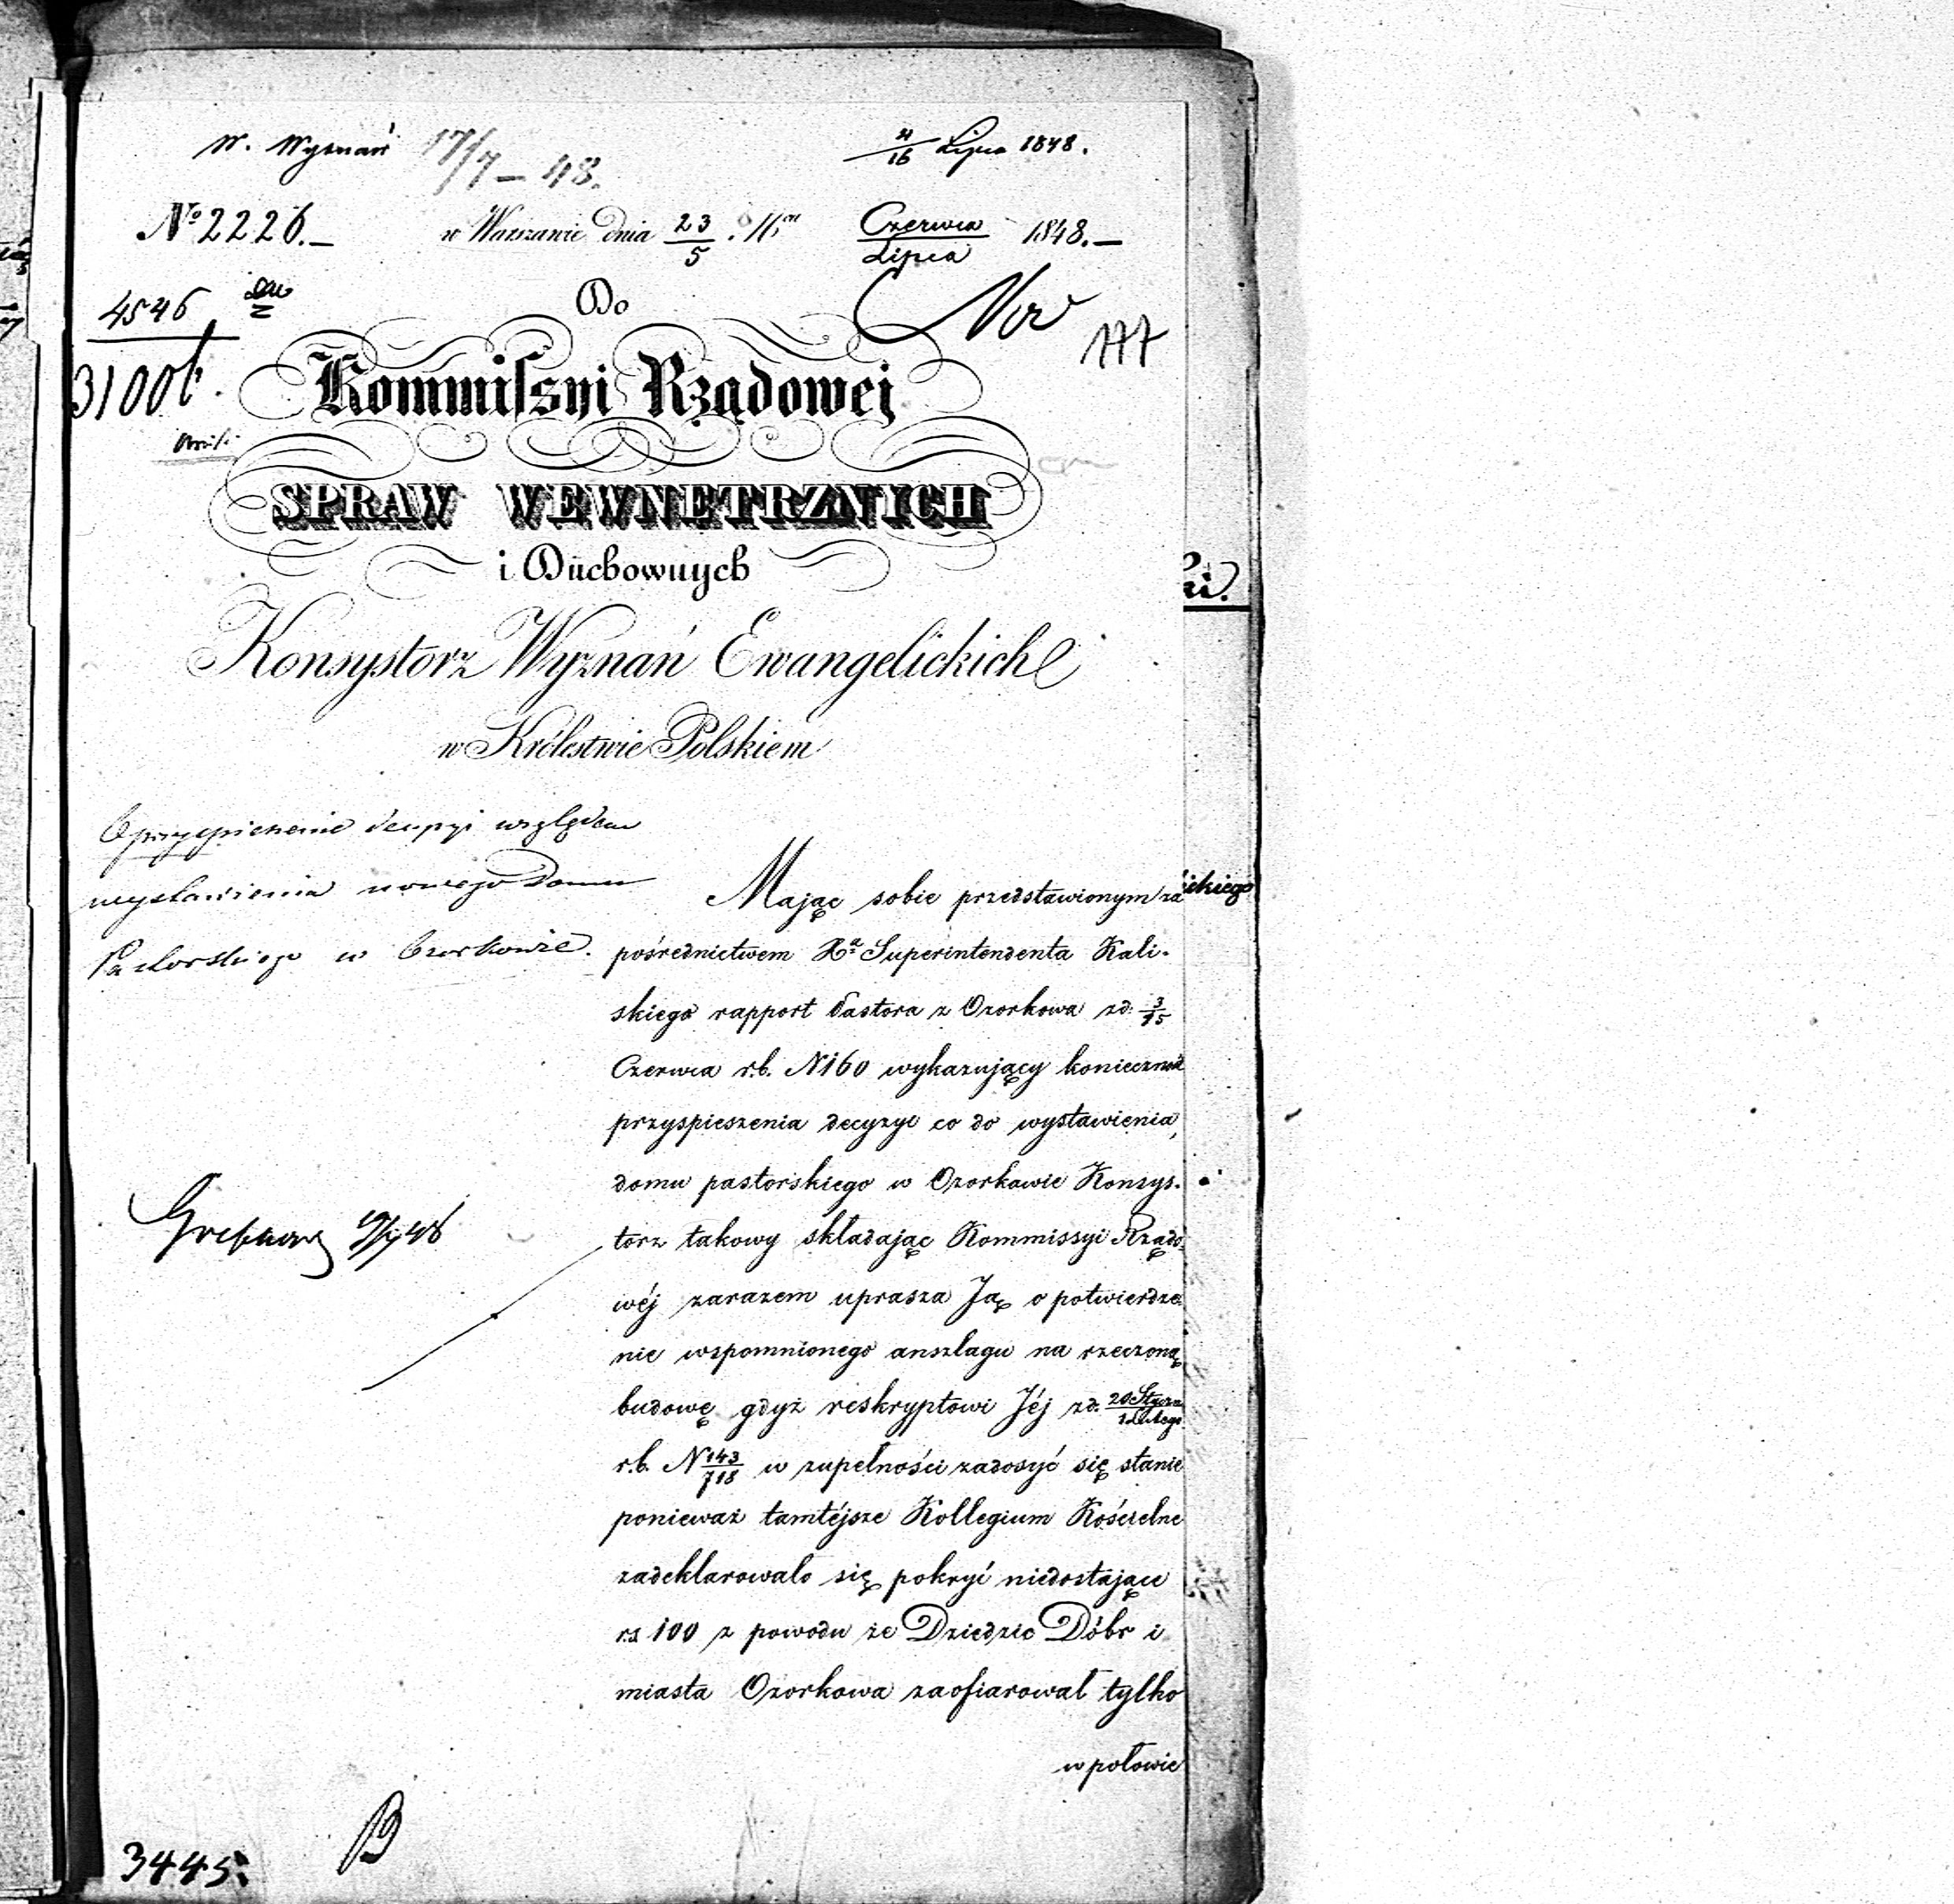 W. Wyznań 17/7 – 48.
4/16 Lipca 1848.
No 2226.–
w Warszawie dnia 23/5 Mca Czerwca/Lipca 1848.–
4546
3100
177
Do
Kommissyi Rządowej
SPRAW WEWNĘTRZNYCH
i Duchownych
Konsystorz Wyznań Ewangelickich
w Królestwie Polskiem
O przyspieszenie decyzyi względem
wystawienia nowego Domu
Pastorskiego w Ozorkowie.
Mając sobie przedstawionym za
pośrednictwem Xa Superintendenta Kali-
skiego rapport Pastora z Ozorkowa zd. 3/15
Czerwca r.b. N 160 wykazujący konieczność
przyspieszenia decyzyi co do wystawienia
domu pastorskiego w Ozorkowie Konsys-
torz takowy składając Kommissyi Rządo-
wéj zarazem uprasza Ją o potwierdze-
nie wspomnionego anszlagu na rzeczoną
budowę gdyż reskryptowi Jéj zd. 20 Stycz/1 Lutego
r.b. N 143/718 w zupełności zadosyć się stanie
ponieważ tamtéjsze Kollegium Kościelne
zadeklarowało się pokryć niedostające
rs 100 z powodu że Dziedzic Dóbr i
miasta Ozorkowa zaofiarował tylko
w połowie
3445.